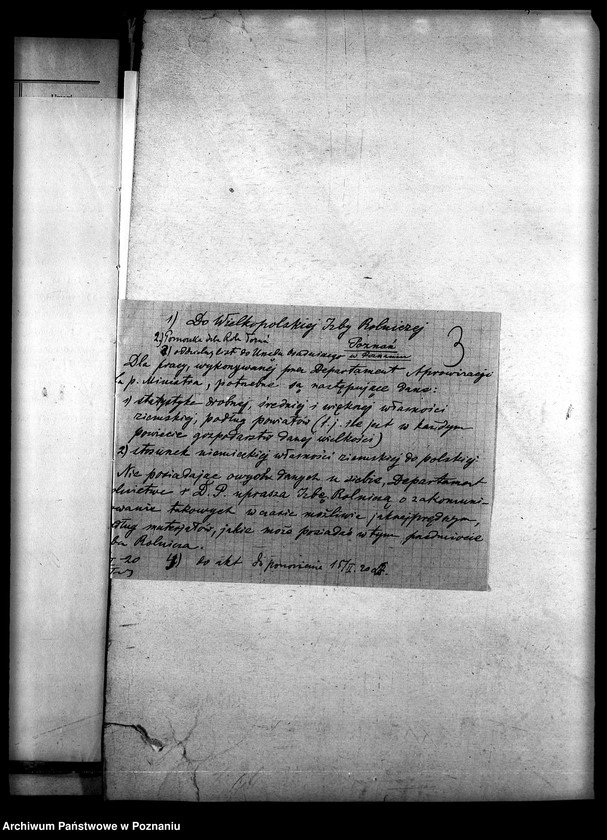 1) Do Wielkopolskiej Izby Rolniczej
3
2) Pomorska Izba Roln Toruń
Poznań
3) oddzielny list do Urzędu Osadniczego w Poznaniu
Dla pracy, wykonywanej przez Departament Aprowizacji
p. Ministra, potrzebne są następujące dane:
1) statystyka drobnej, średniej i większej własności
ziemskiej, podług powiatów (t.j. ile jest w każdym
powiecie gospodarstw danej wielkości)
2) stosunek niemieckiej własności ziemskiej do polskiej
Nie posiadając owych danych u siebie, Departament
Rolnictwa b D. P. uprasza Izbę Rolniczą o zakomuni-
kowanie takowych w czasie możliwie jaknajprędszym,
według materjałów, jakie może posiadać w tym przedmiocie
Izba Rolnicza.
20
4) do akt do ponowienia 15/II. 20
Archiwum Państwowe w Poznaniu